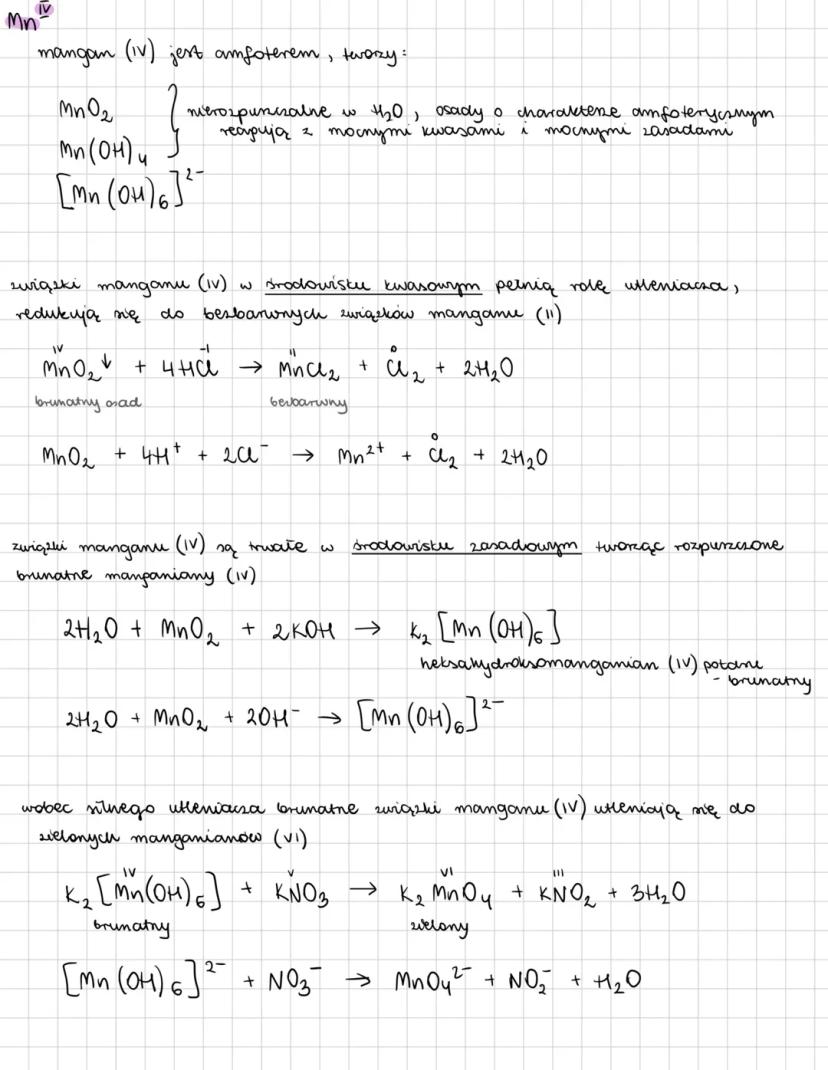 Mn^IV
mangan (IV) jest amfoterem, tworzy:
MnO₂
Mn(OH)₄ } nierozpuszczalne w H₂O, osady o charakterze amfoterycznym
reagują z mocnymi kwasami i mocnymi zasadami
[Mn(OH)₆]²⁻
związki manganu (IV) w środowisku kwasowym pełnią rolę utleniacza,
redukują się do bezbarwnych związków manganu (II)
IV -I II 0
MnO₂↓ + 4HCl → MnCl₂ + Cl₂ + 2H₂O
brunatny osad bezbarwny
0
MnO₂ + 4H⁺ + 2Cl⁻ → Mn²⁺ + Cl₂ + 2H₂O
związki manganu (IV) są trwałe w środowisku zasadowym tworząc rozpuszczone
brunatne manganiany (IV)
2H₂O + MnO₂ + 2KOH → K₂[Mn(OH)₆]
heksahydroksomanganian (IV) potasu
- brunatny
2H₂O + MnO₂ + 2OH⁻ → [Mn(OH)₆]²⁻
wobec silnego utleniacza brunatne związki manganu (IV) utleniają się do
zielonych manganianów (VI)
IV V VI III
K₂[Mn(OH)₆] + KNO₃ → K₂MnO₄ + KNO₂ + 3H₂O
brunatny zielony
[Mn(OH)₆]²⁻ + NO₃⁻ → MnO₄²⁻ + NO₂⁻ + H₂O